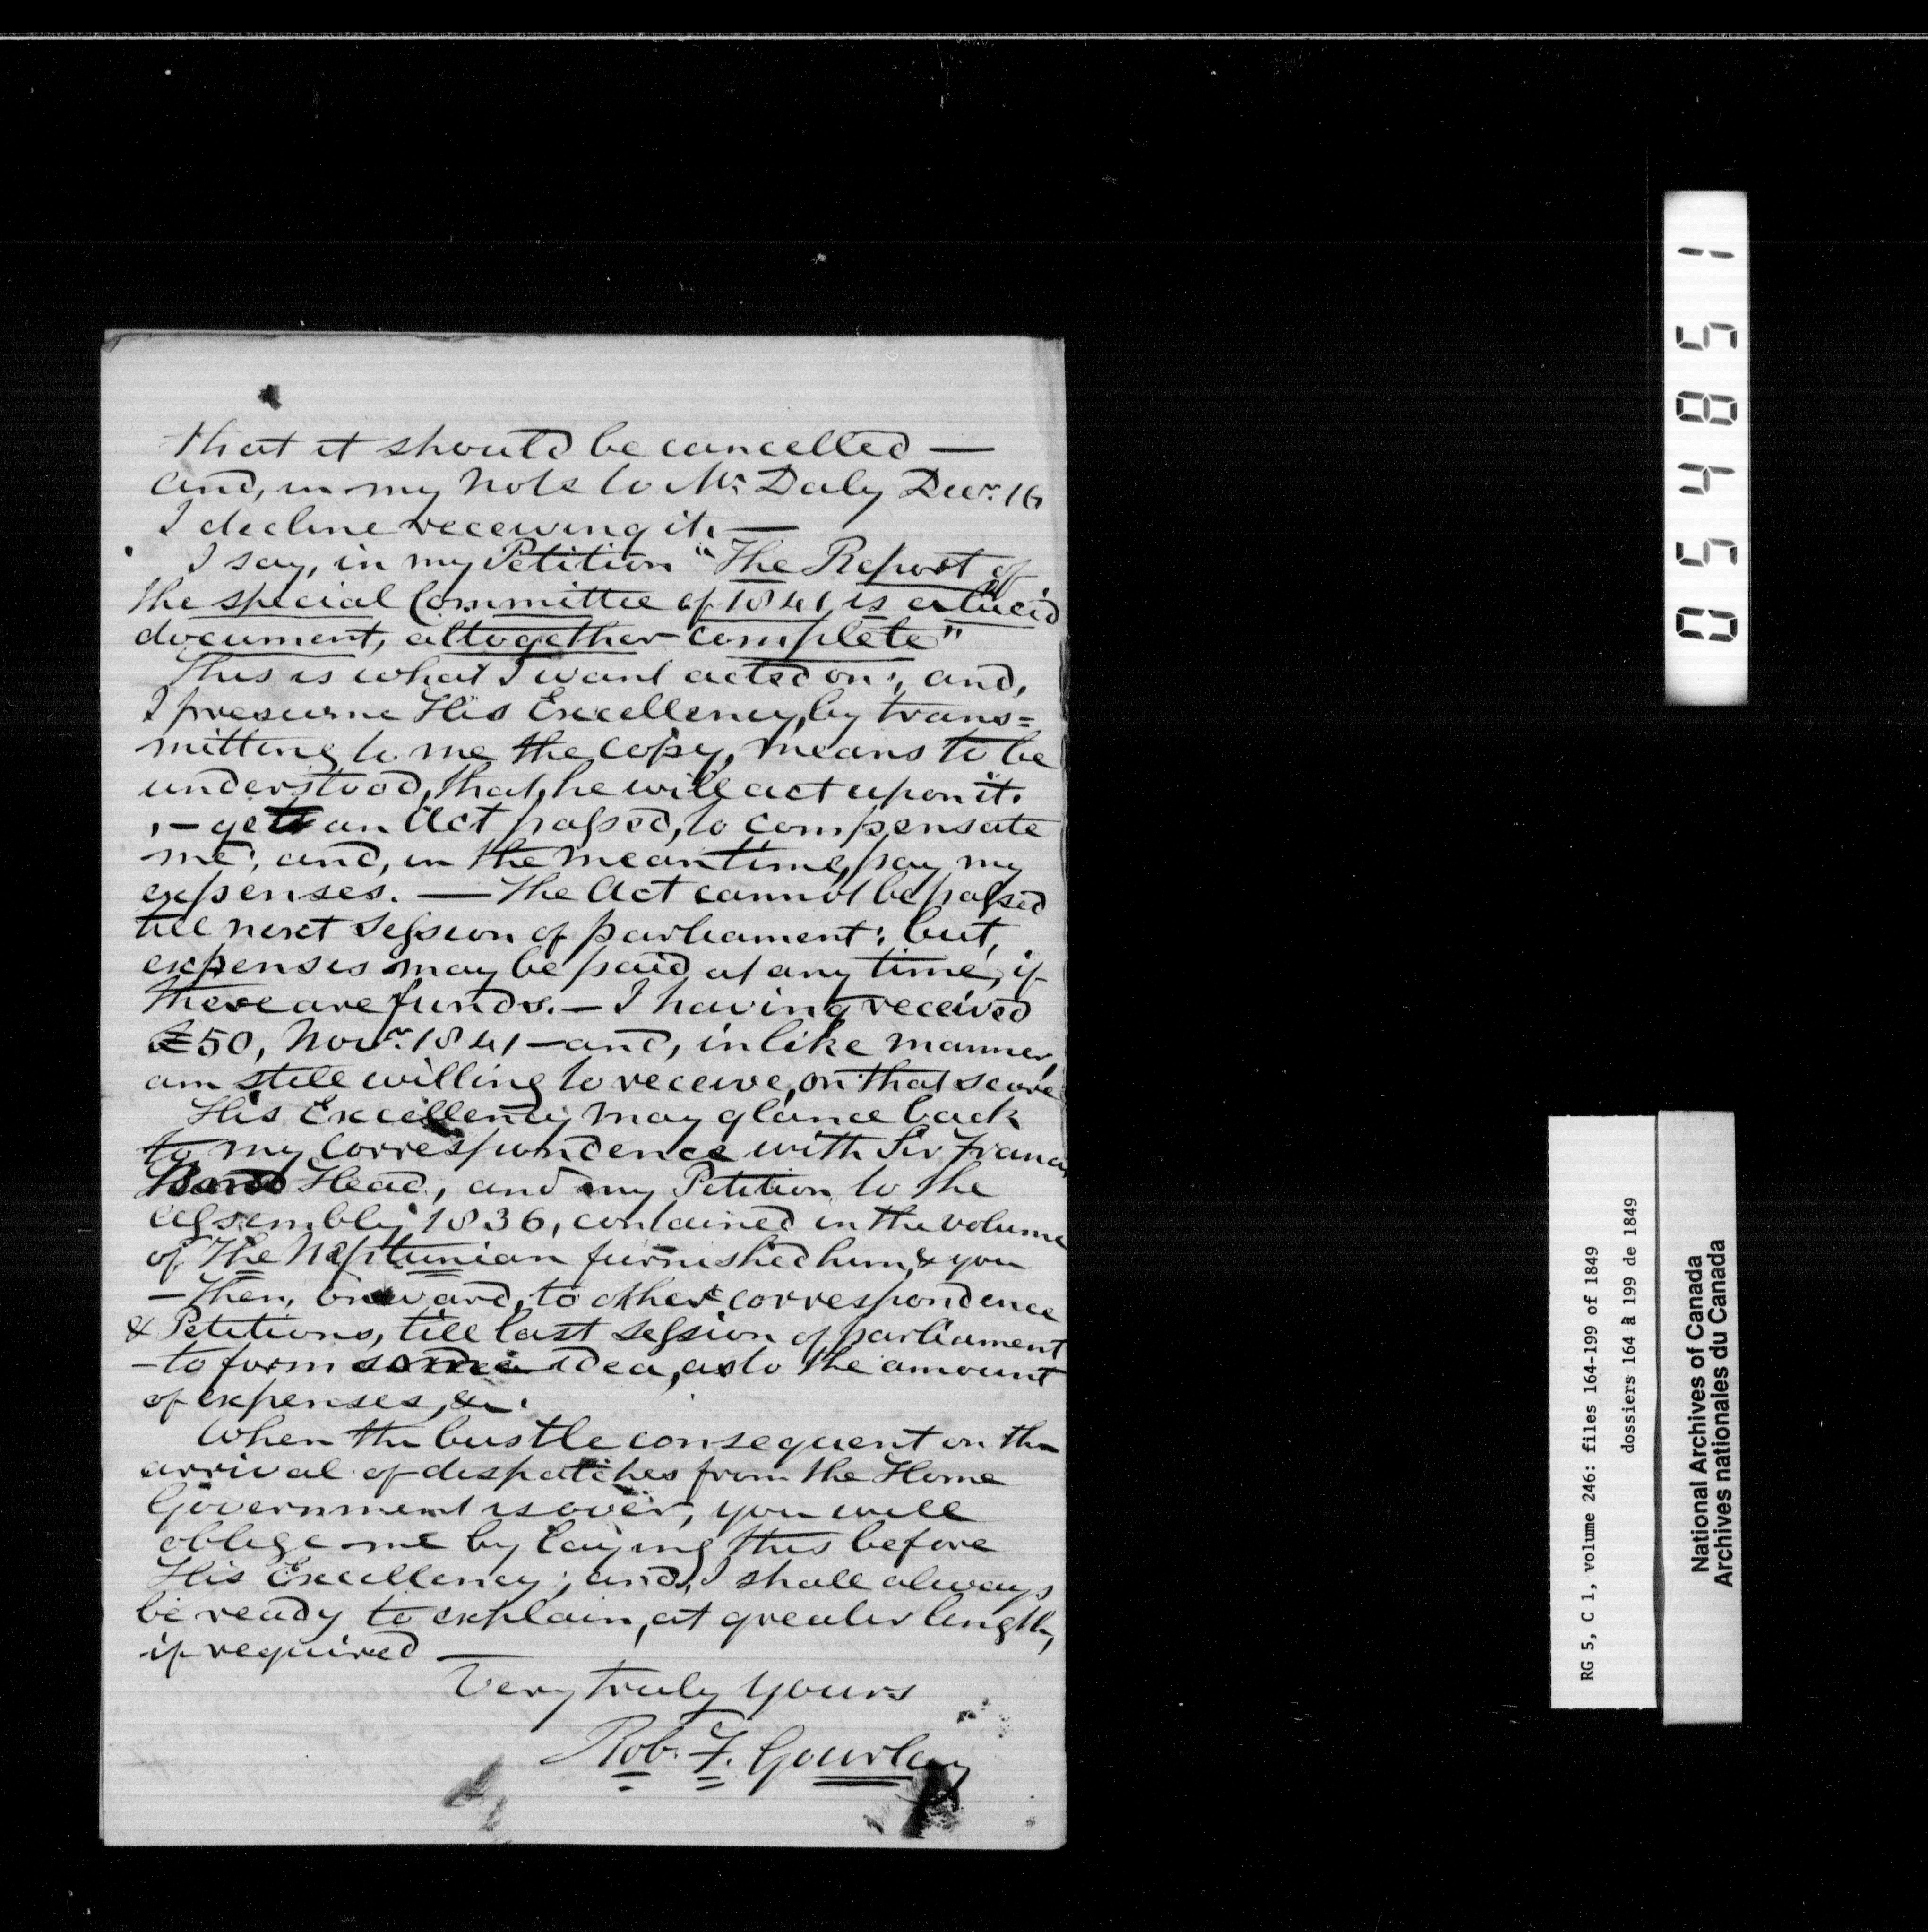 that it should be cancelled —
and, in my note to Mr. Daly Decr. 16
I decline receiving it. —
I say, in my Petition "The Report of
the special Committee of 1841 is a lucid
document, altogether complete"
This is what I want acted on; and,
I presume His Excellency, by trans=
mitting to me the copy, means to be
understood, that, he will act upon it.
— get an Act passed, to compensate
me; and, in the meantime, pay my
expenses. — The Act cannot be passed
till next Session of parliament; but,
expenses may be paid at any time, if
there are funds. — I having received
£50, Novr. 1841 — and, in like manner,
am still willing to receive, on that score
His Excellency may glance back
to my correspondence with Sir Francis
Bond Head, and my Petition to the
assembly 1836, contained in the volume
of The Neptunian furnished him, & you
— Then, onward, to other correspondence
& Petitions, till last session of parliament
— to form some idea, as to the amount
of expenses, &c.
When the bustle consequent on the
arrival of despatches from the Home
Government is over, you will
oblige me by laying this before
His Excellency; and, I shall always
be ready to explain, at greater length,
if required —
Very truly yours
Rob. F. Gourlay
054851
RG 5, C 1, volume 246: files 164-199 of 1849
dossiers 164 à 199 de 1849
National Archives of Canada
Archives nationales du Canada